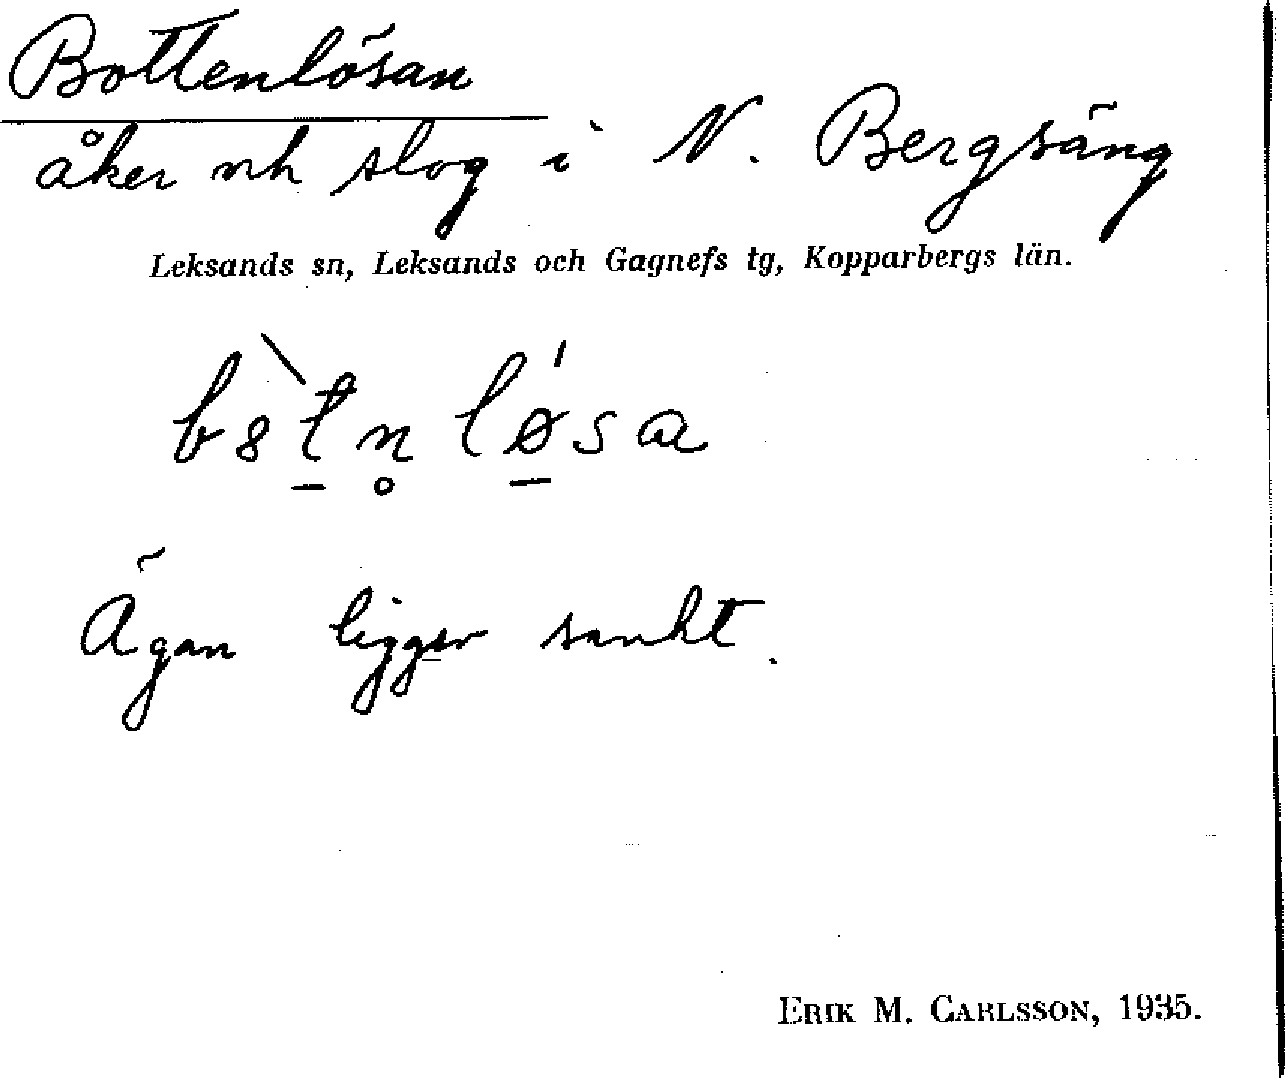 Bottenlösan
åker och slog i N. Bergsäng
Leksands sn, Leksands och Gagnefs tg, Kopparbergs län.
b8̀t̠n̥ lǿ̠sa
Ägan ligger sankt.
ERIK M. CARLSSON, 1935.